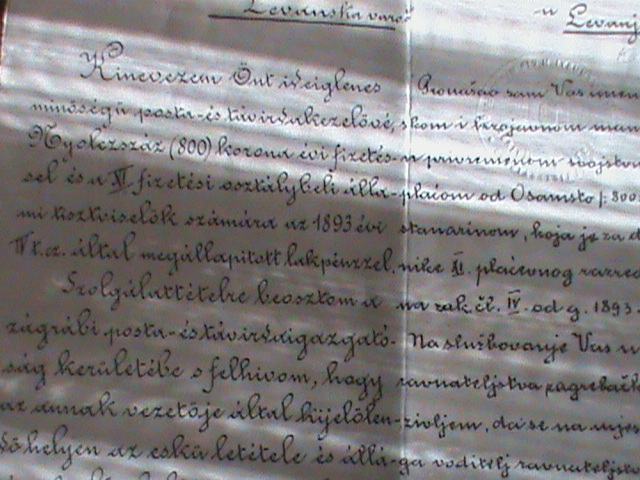 Levanska varoš
Kinevezem Önt ideiglenes
minőségű posta- és távirdakezelővé,
Nyolczszáz (800) korona évi fizetés-
sel és a XI fizetési osztálybeli álla-
mi tisztviselők számára az 1893 évi
IV t.cz. által megállapított lakpénzzel.
Szolgálattételre beosztom a
zágrábi posta- és távirdaigazgató-
ság kerületébe s felhivom, hogy
az annak vezetője által kijelölen-
dő helyen az eskü letétele és állá-
u Levanj
Pronašao sam Vas imen
skom i brzojavnom man
u privremenom svojstvu
plaćom od Osamsto (: 800
stanarinom, koja je za d
nike XI. plaćevnog razred
na zak. čl. IV. od g. 1893.
Na službovanje Vas u
ravnateljstva zagrebačk
zivljem, da se na mjes
ga voditelj ravnateljstv